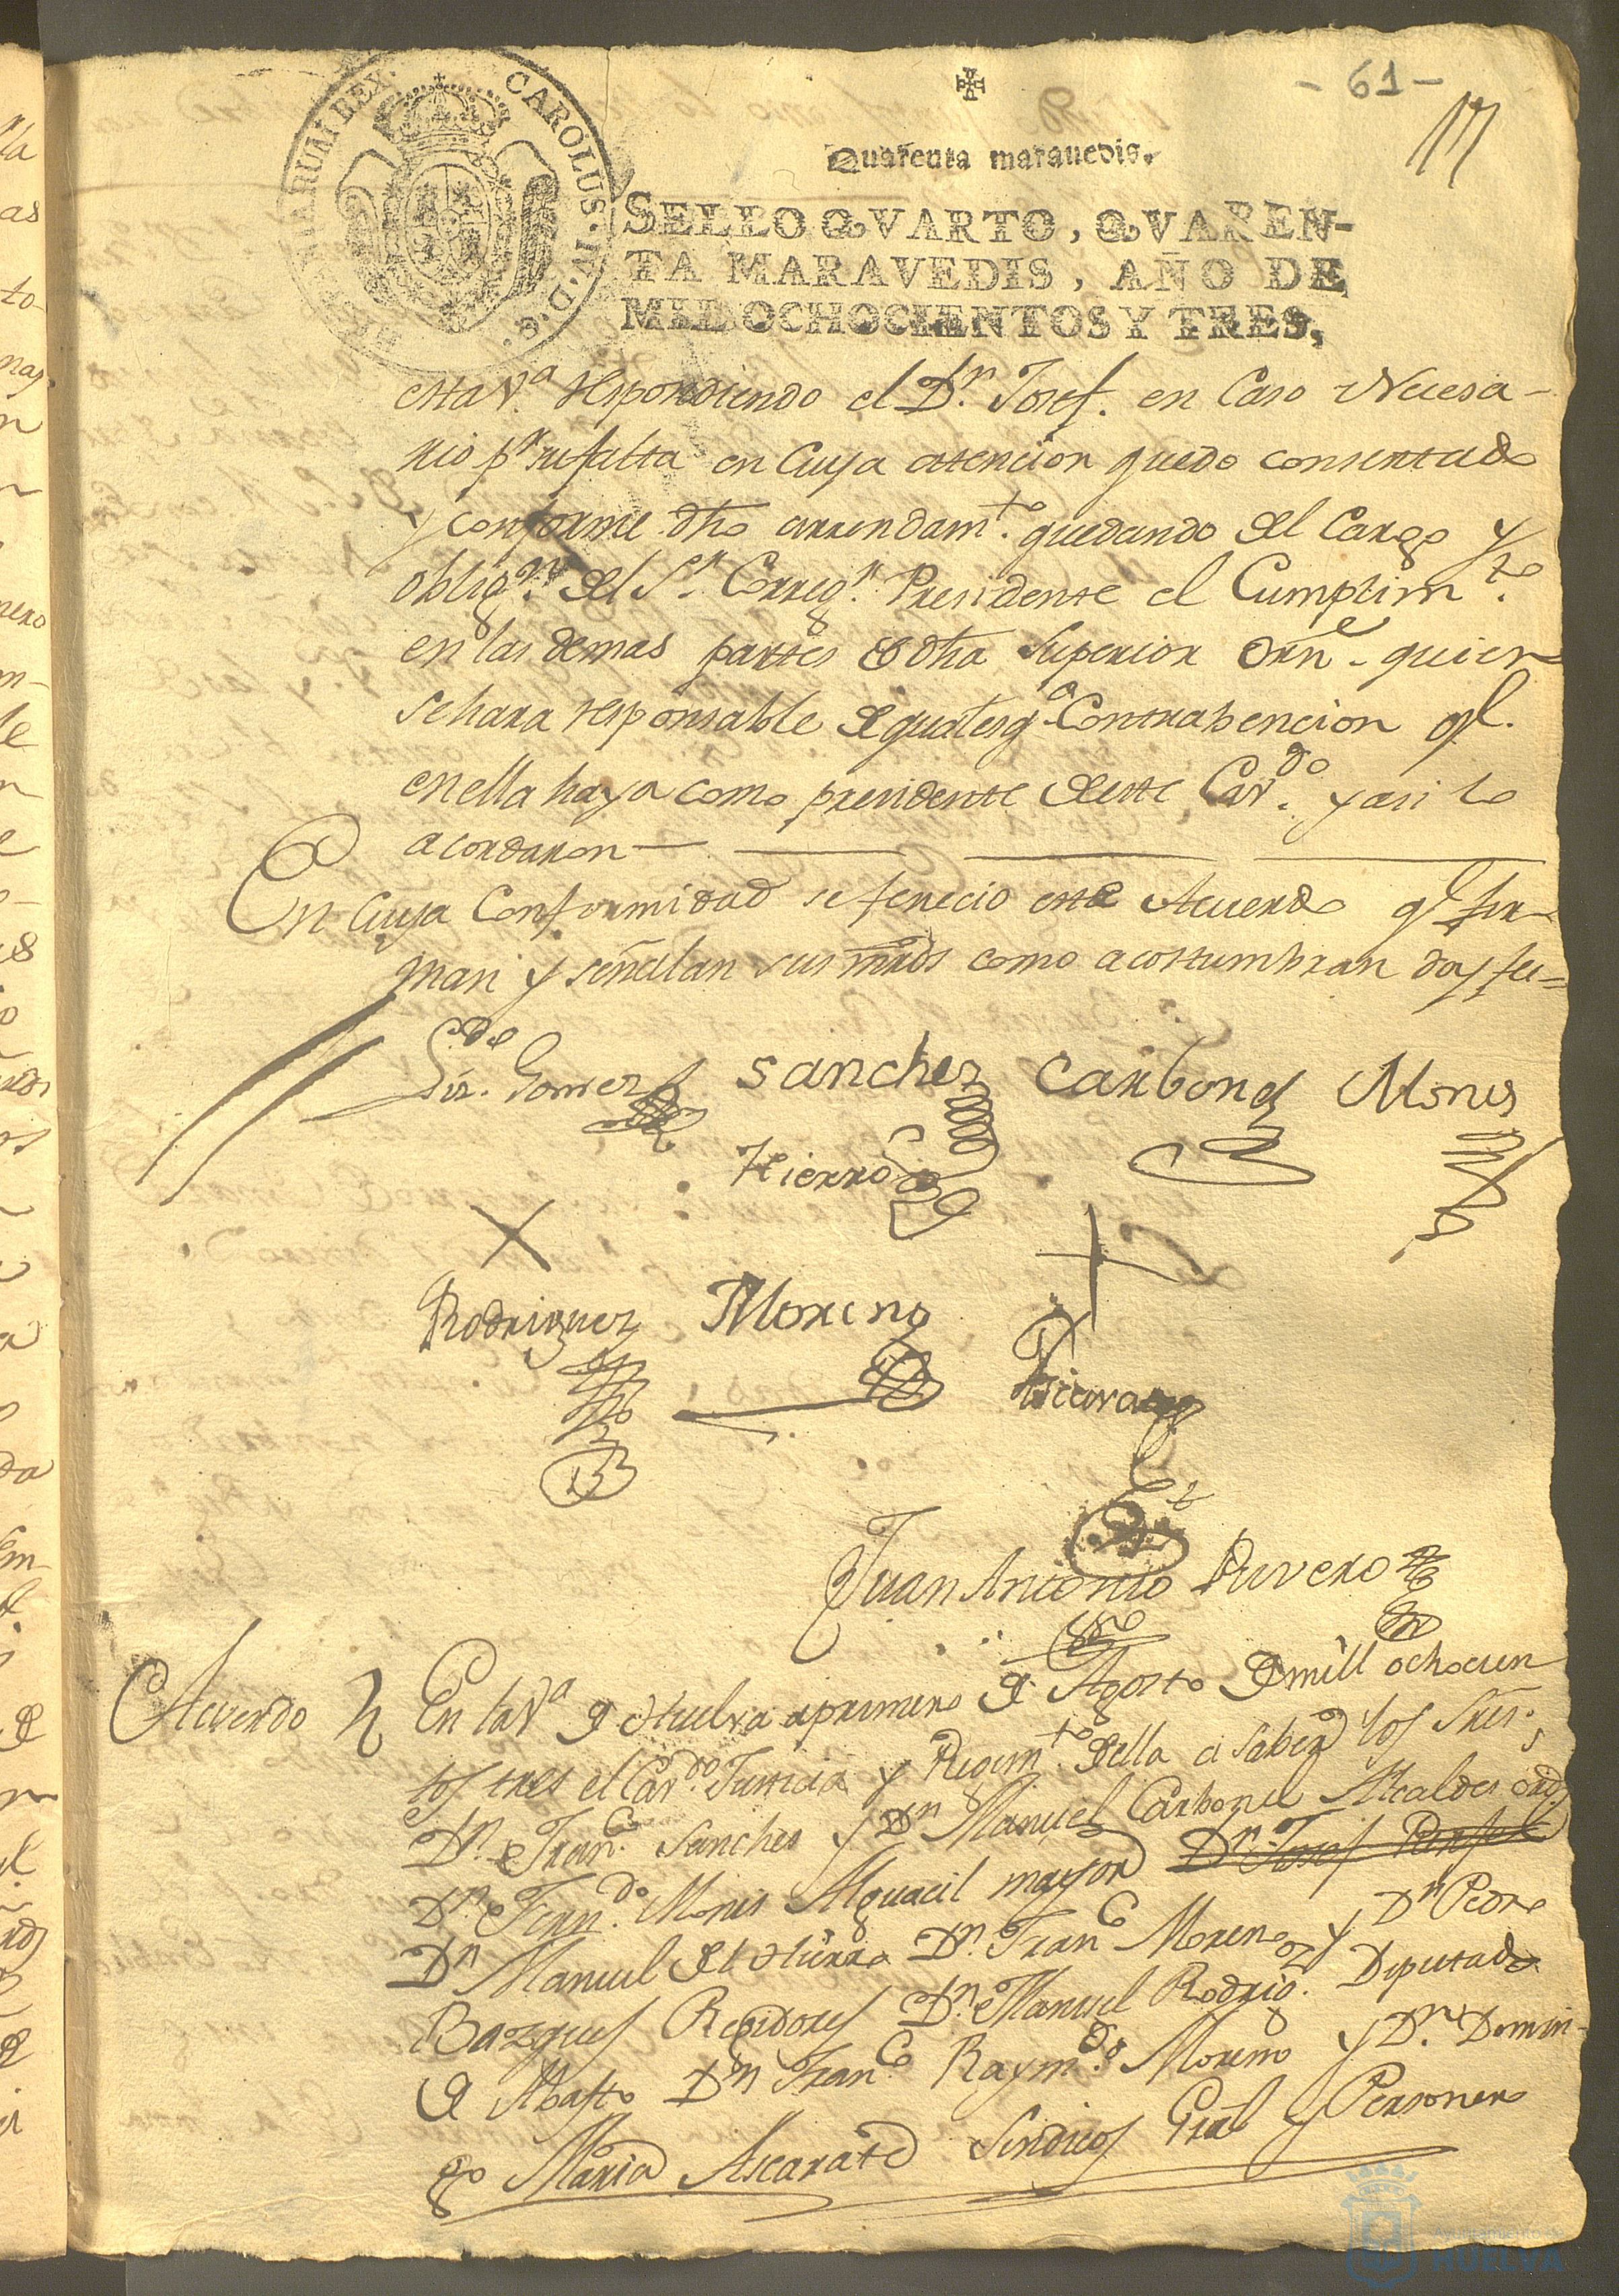 - 61 -
Quarenta maravedis.
SELLO QVARTO, QVAREN-
TA MARAVEDIS, AÑO DE
MIL OCHOCIENTOS Y TRES.
CAROLUS IV D. G. HISPANIARUM REX
esta V.ª respondiendo el D.n Josef. en Caso Necesa-
rio p.r su falta en Cuya atencion quedo consertado
y conforme dho arrendam.to quedando del Cargo y
oblig.n del S.r Correg.r Presidente el Cumplim.to
en las demas partes de dha Superior Orn.e quien
se hara responsable de qualesq.a Contrabencion ql.
en ella haya como presidente de este Cav.do y asi lo
acordaron
En Cuya Conformidad se fenecio este Acuerdo ql fir-
man y señalan sus mrds como acostumbran doy fee=
Liz.do Gomez Sanchez Carbonel Mones
Hierro
Rodriguez Moreno
Ascarate
Juan Antonio Rivero
SSno
Acuerdo En la V.ª de Huelva a primero de Agosto de mill ochocien
tos tres el Cav.do Justicia y Regim.to de ella a saber los Sres.
D.n Fran.co Sanches y D.n Manuel Carbonel Alcaldes ord.s
D.n Fern.do Mones Alguacil mayor D.n Josef
D.n Manuel del Hierro D.n Fran.co Moreno y D.n Pedro
Bazques Regidores D.n Manuel Rodrig.z Diputado
de Abasto D.n Fran.co Raym.do Moreno y D.n Domin-
go Maria Ascarate Sindicos Gral y Personero
Ayuntamiento de
HUELVA